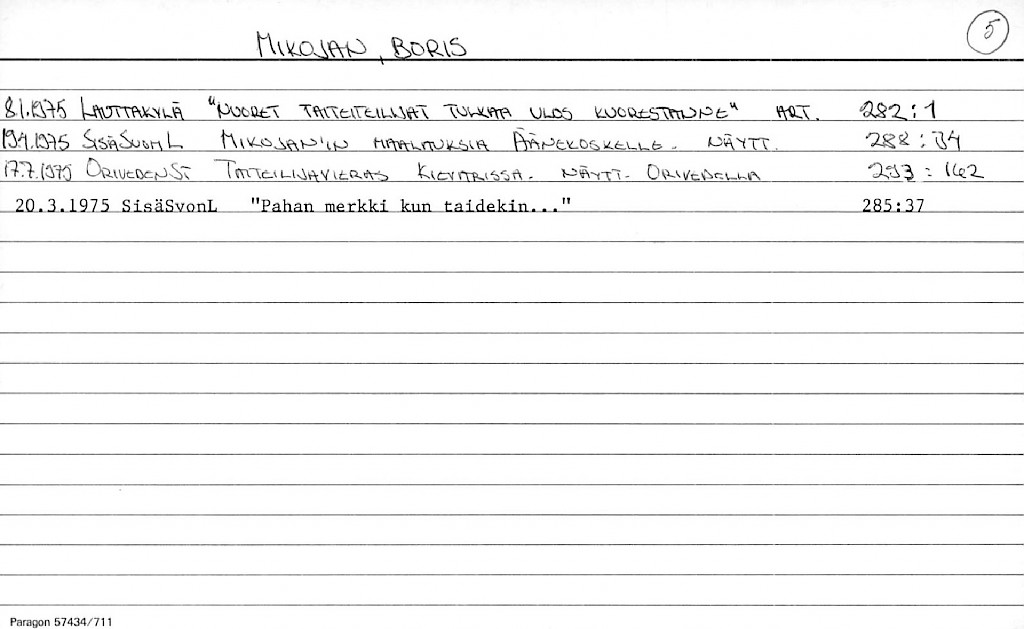 MIKOJAN, BORIS
5
8.1.1975 LAUTTAKYLÄ "NUORET TAITEITEILIJAT TULKAA ULOS KUORESTANNE" ART. 282:1
19.4.1975 SISÄSUOM L MIKOJAN'IN MAALAUKSIA ÄÄNEKOSKELLE. NÄYTT. 288:34
17.7.1975 ORIVEDENST TAITEILIJAVIERAS KIEVARISSA. NÄYTT. ORIVEDELLÄ 293:162
20.3.1975 SisäSvonL "Pahan merkki kun taidekin..." 285:37
Paragon 57434/711